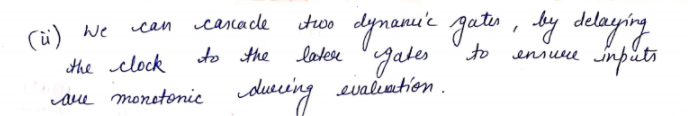 (ii) We can cascade two dynamic gates, by delaying
the clock to the later gates to ensure inputs
are monotonic during evaluation.